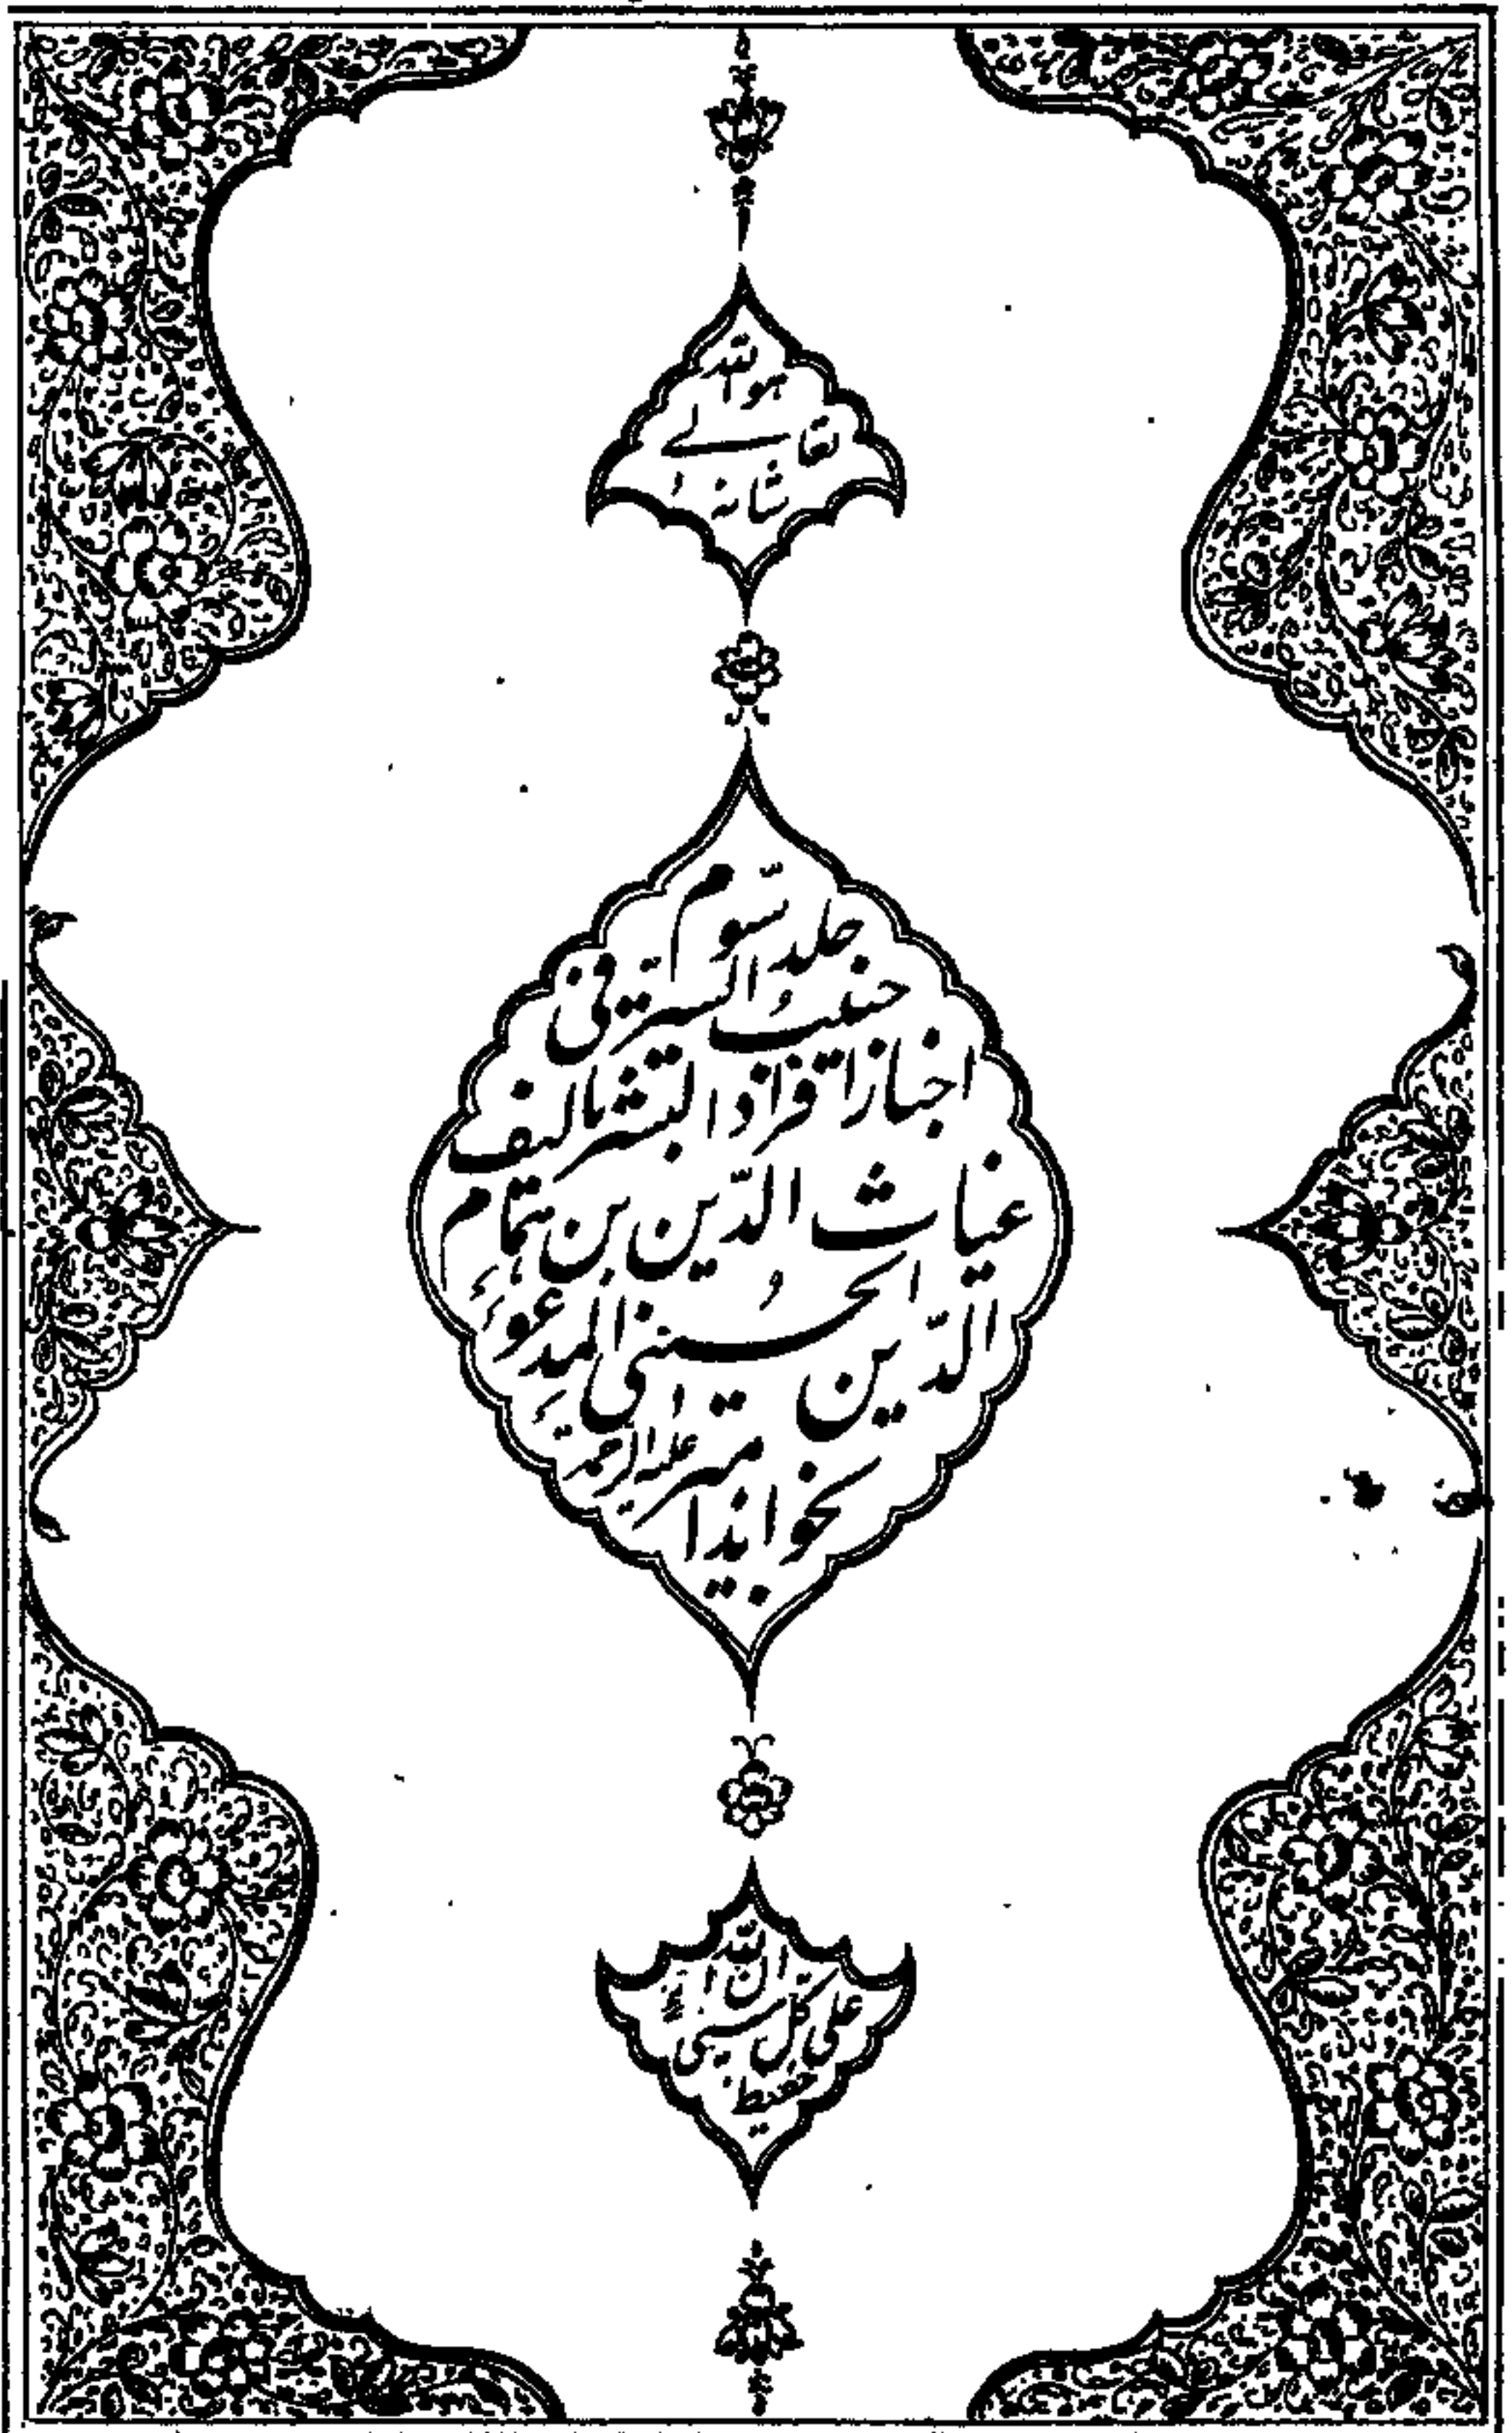 هو الله
تعالی
شانه
جلد سوّم
حبیب السیر فی
اخبار افراد البشر تالیف
غیاث الدّین بن همام
الدّین الحسینی المدعو
بخواند امیر علیه الرحمة
ان الله
علی کل شیی
حفیظ